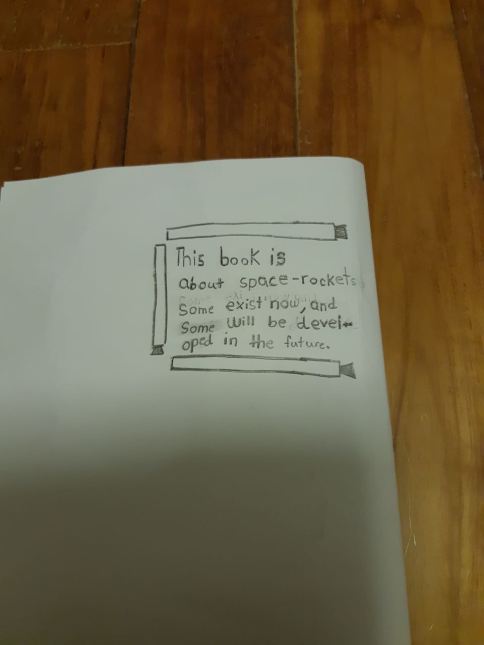 This book is
about space-rockets
Some exist now, and
Some will be devel-
oped in the future.